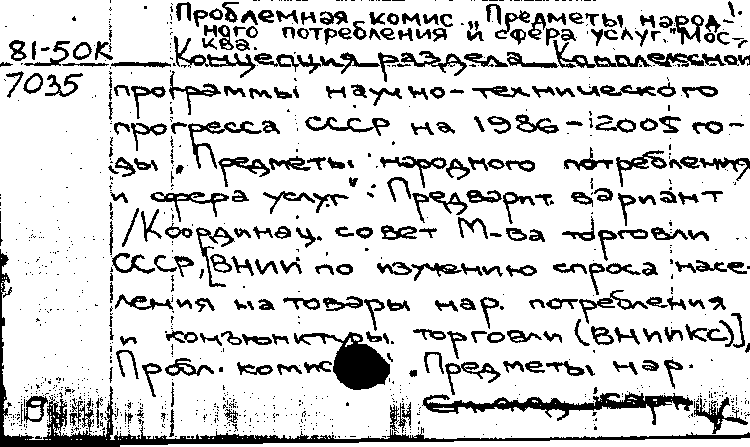 Проблемная комис. „Предметы народ-
ного потребления и сфера услуг." Мос-
ква.
81-50К
Концепция раздела Комплексной
7035
программы научно-технического
прогресса СССР на 1986-2005 го-
ды „Предметы народного потребления
и сфера услуг": Предварит. вариант
/Координац. совет М-ва торговли
СССР, [ВНИИ по изучению спроса насе-
ления на товары нар. потребления
и конъюнктуры торговли (ВНИИКС)],
Пробл. комис. „Предметы нар.
9